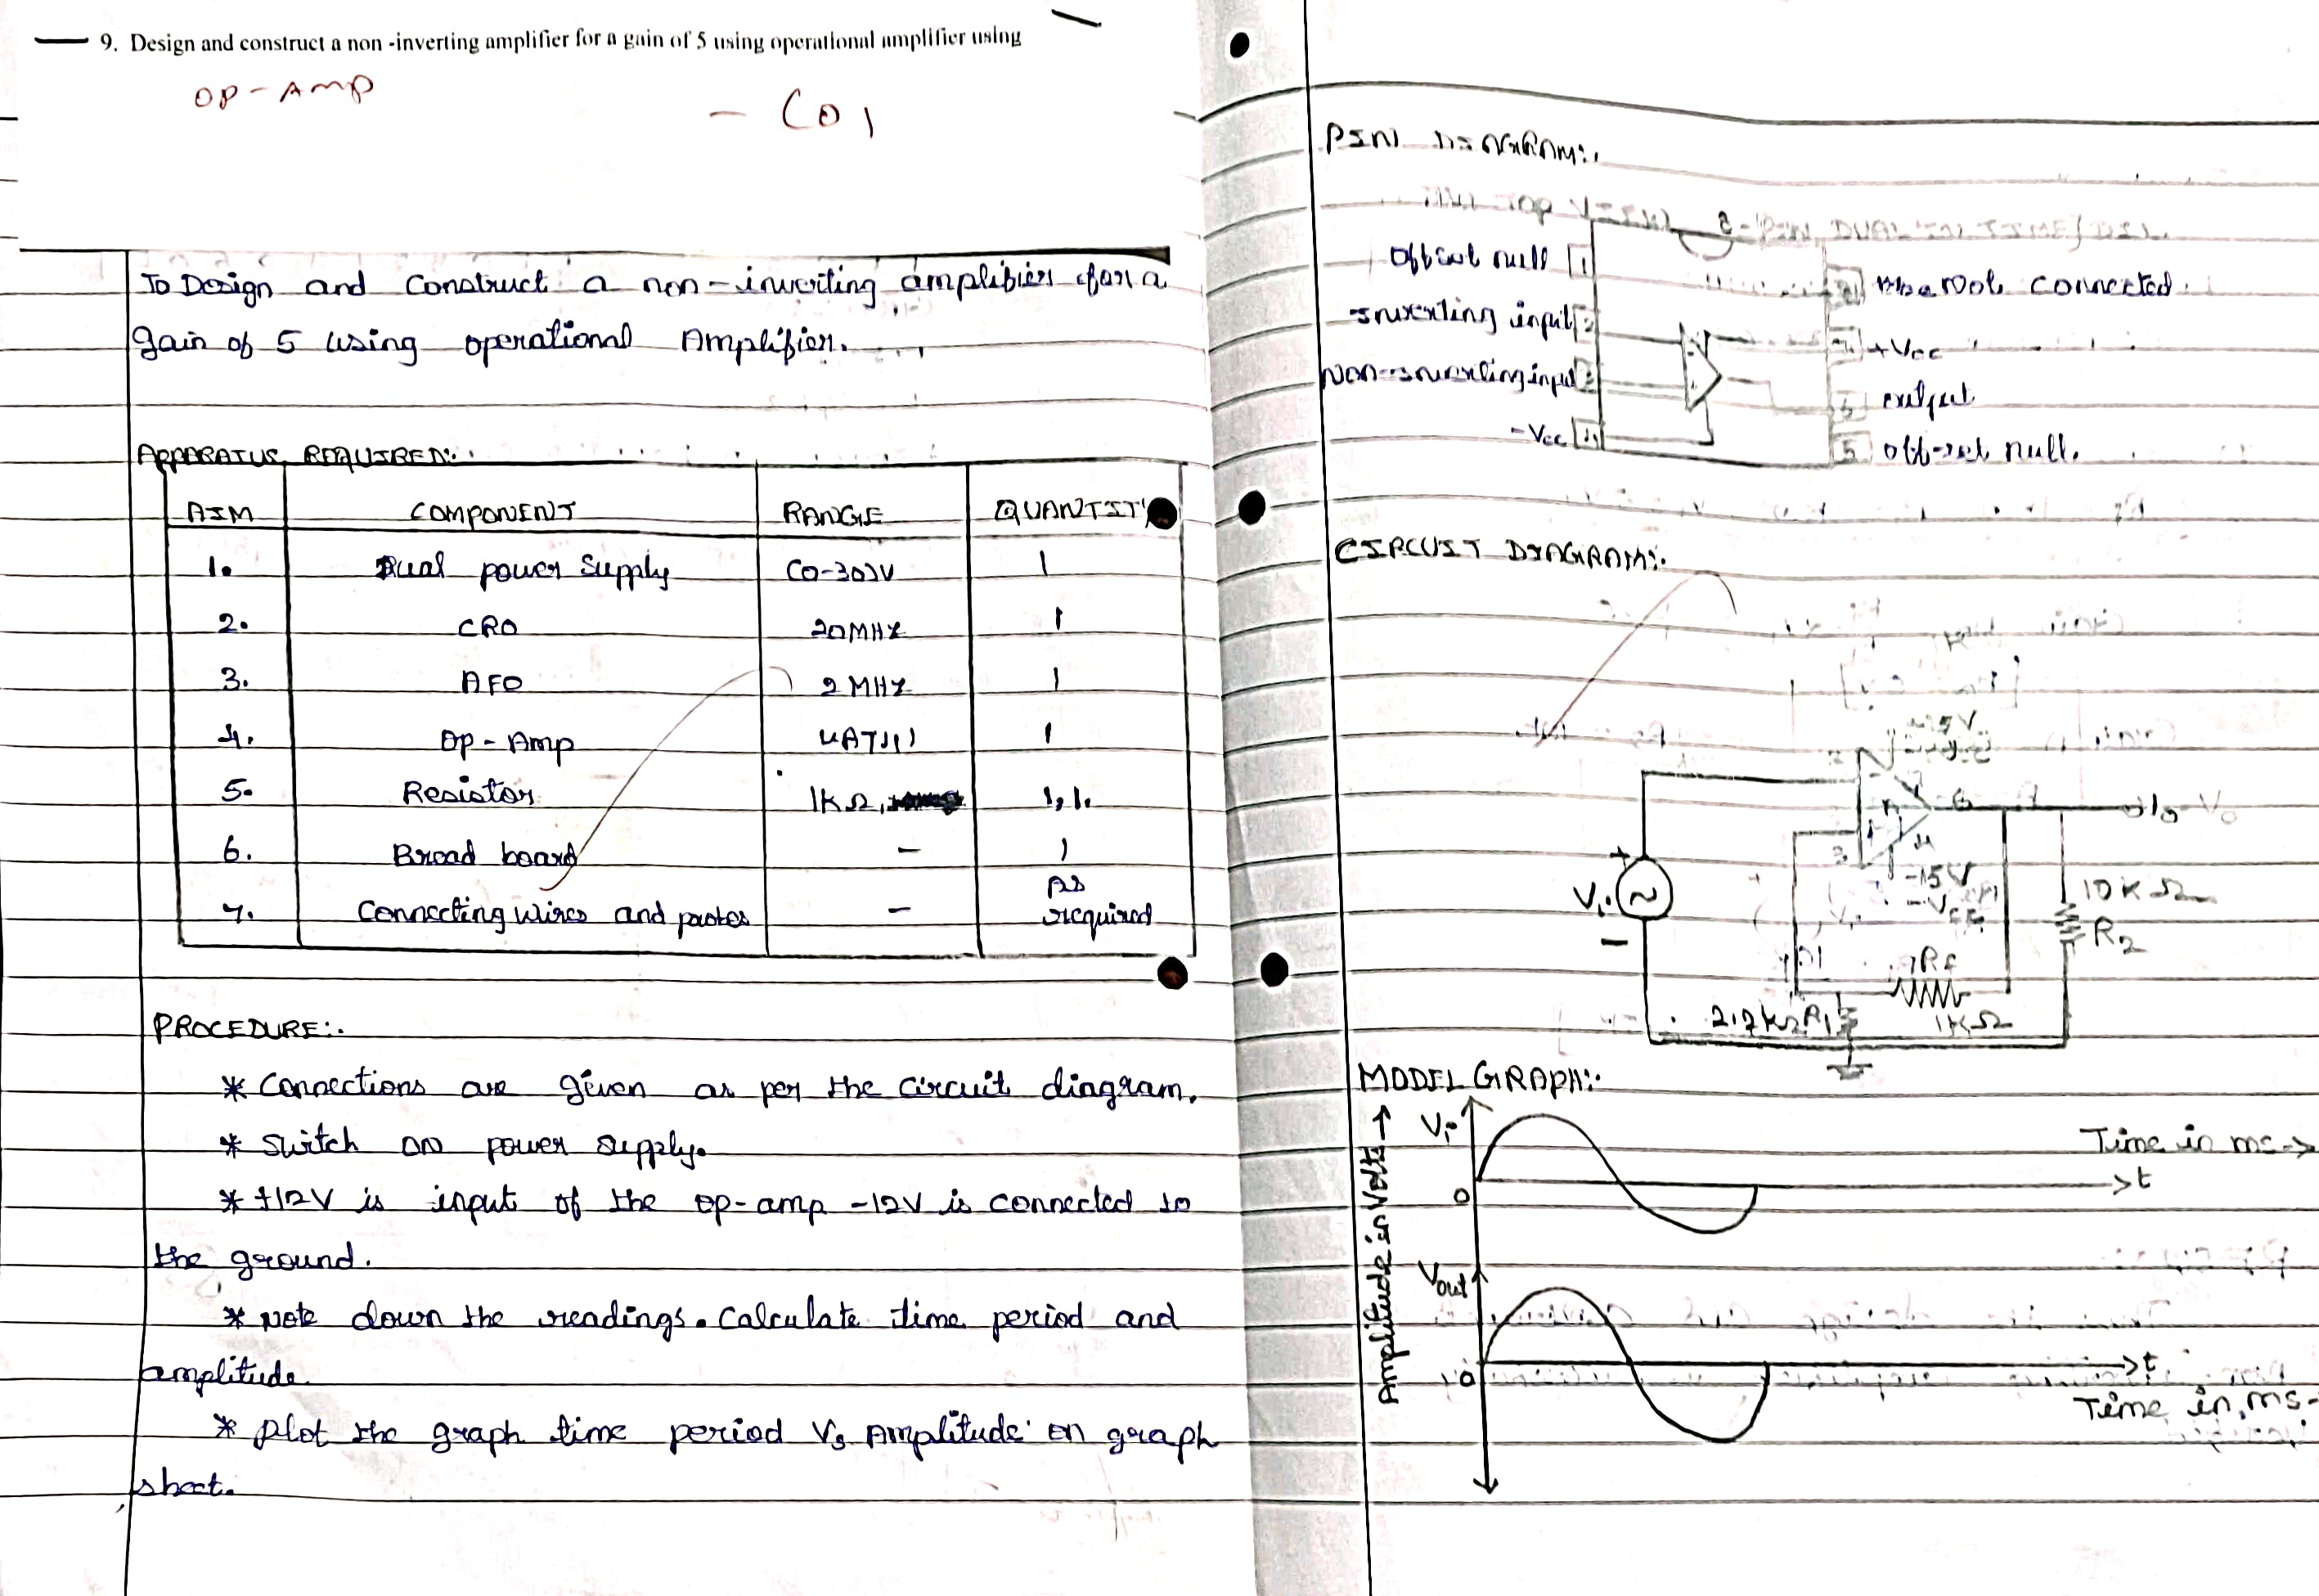 9. Design and construct a non -inverting amplifier for a gain of 5 using operational amplifier using
OP-Amp
- CO1
To Design and Construct a non-inverting amplifier for a
gain of 5 using operational Amplifier.
APPARATUS REQUIRED:.
AIM COMPONENT RANGE QUANTITY
1. Dual power Supply (0-30)V 1
2. CRO 20MHz 1
3. AFO 2 MHz 1
4. Op-Amp 1
5. Resistor 1KΩ, 1,1.
6. Bread board - 1
7. Connecting wires and probes - As
required
PROCEDURE:.
* Connections are given as per the circuit diagram.
* Switch on power supply.
* +12V is input of the op-amp -12V is connected to
the ground.
* Note down the readings. Calculate time period and
amplitude.
* plot the graph time period Vs Amplitude on graph
sheet.
PIN DIAGRAM:.
Top VIEW 8-PIN DUAL IN
Offset null 1
Inverting input 2
Non-Inverting input 3
-Vcc 4
Not connected.
+Vcc
6 output
5 off-set null.
CIRCUIT DIAGRAM:.
2
7
6
Vo
3
4
-15V
-VCC
Vi
+
-
10KΩ
R2
RF
1KΩ
R1
MODEL GRAPH:.
Amplitude in Volts →
Vi
0
Time in ms->
>t
Vout
0
>t
Time in ms-